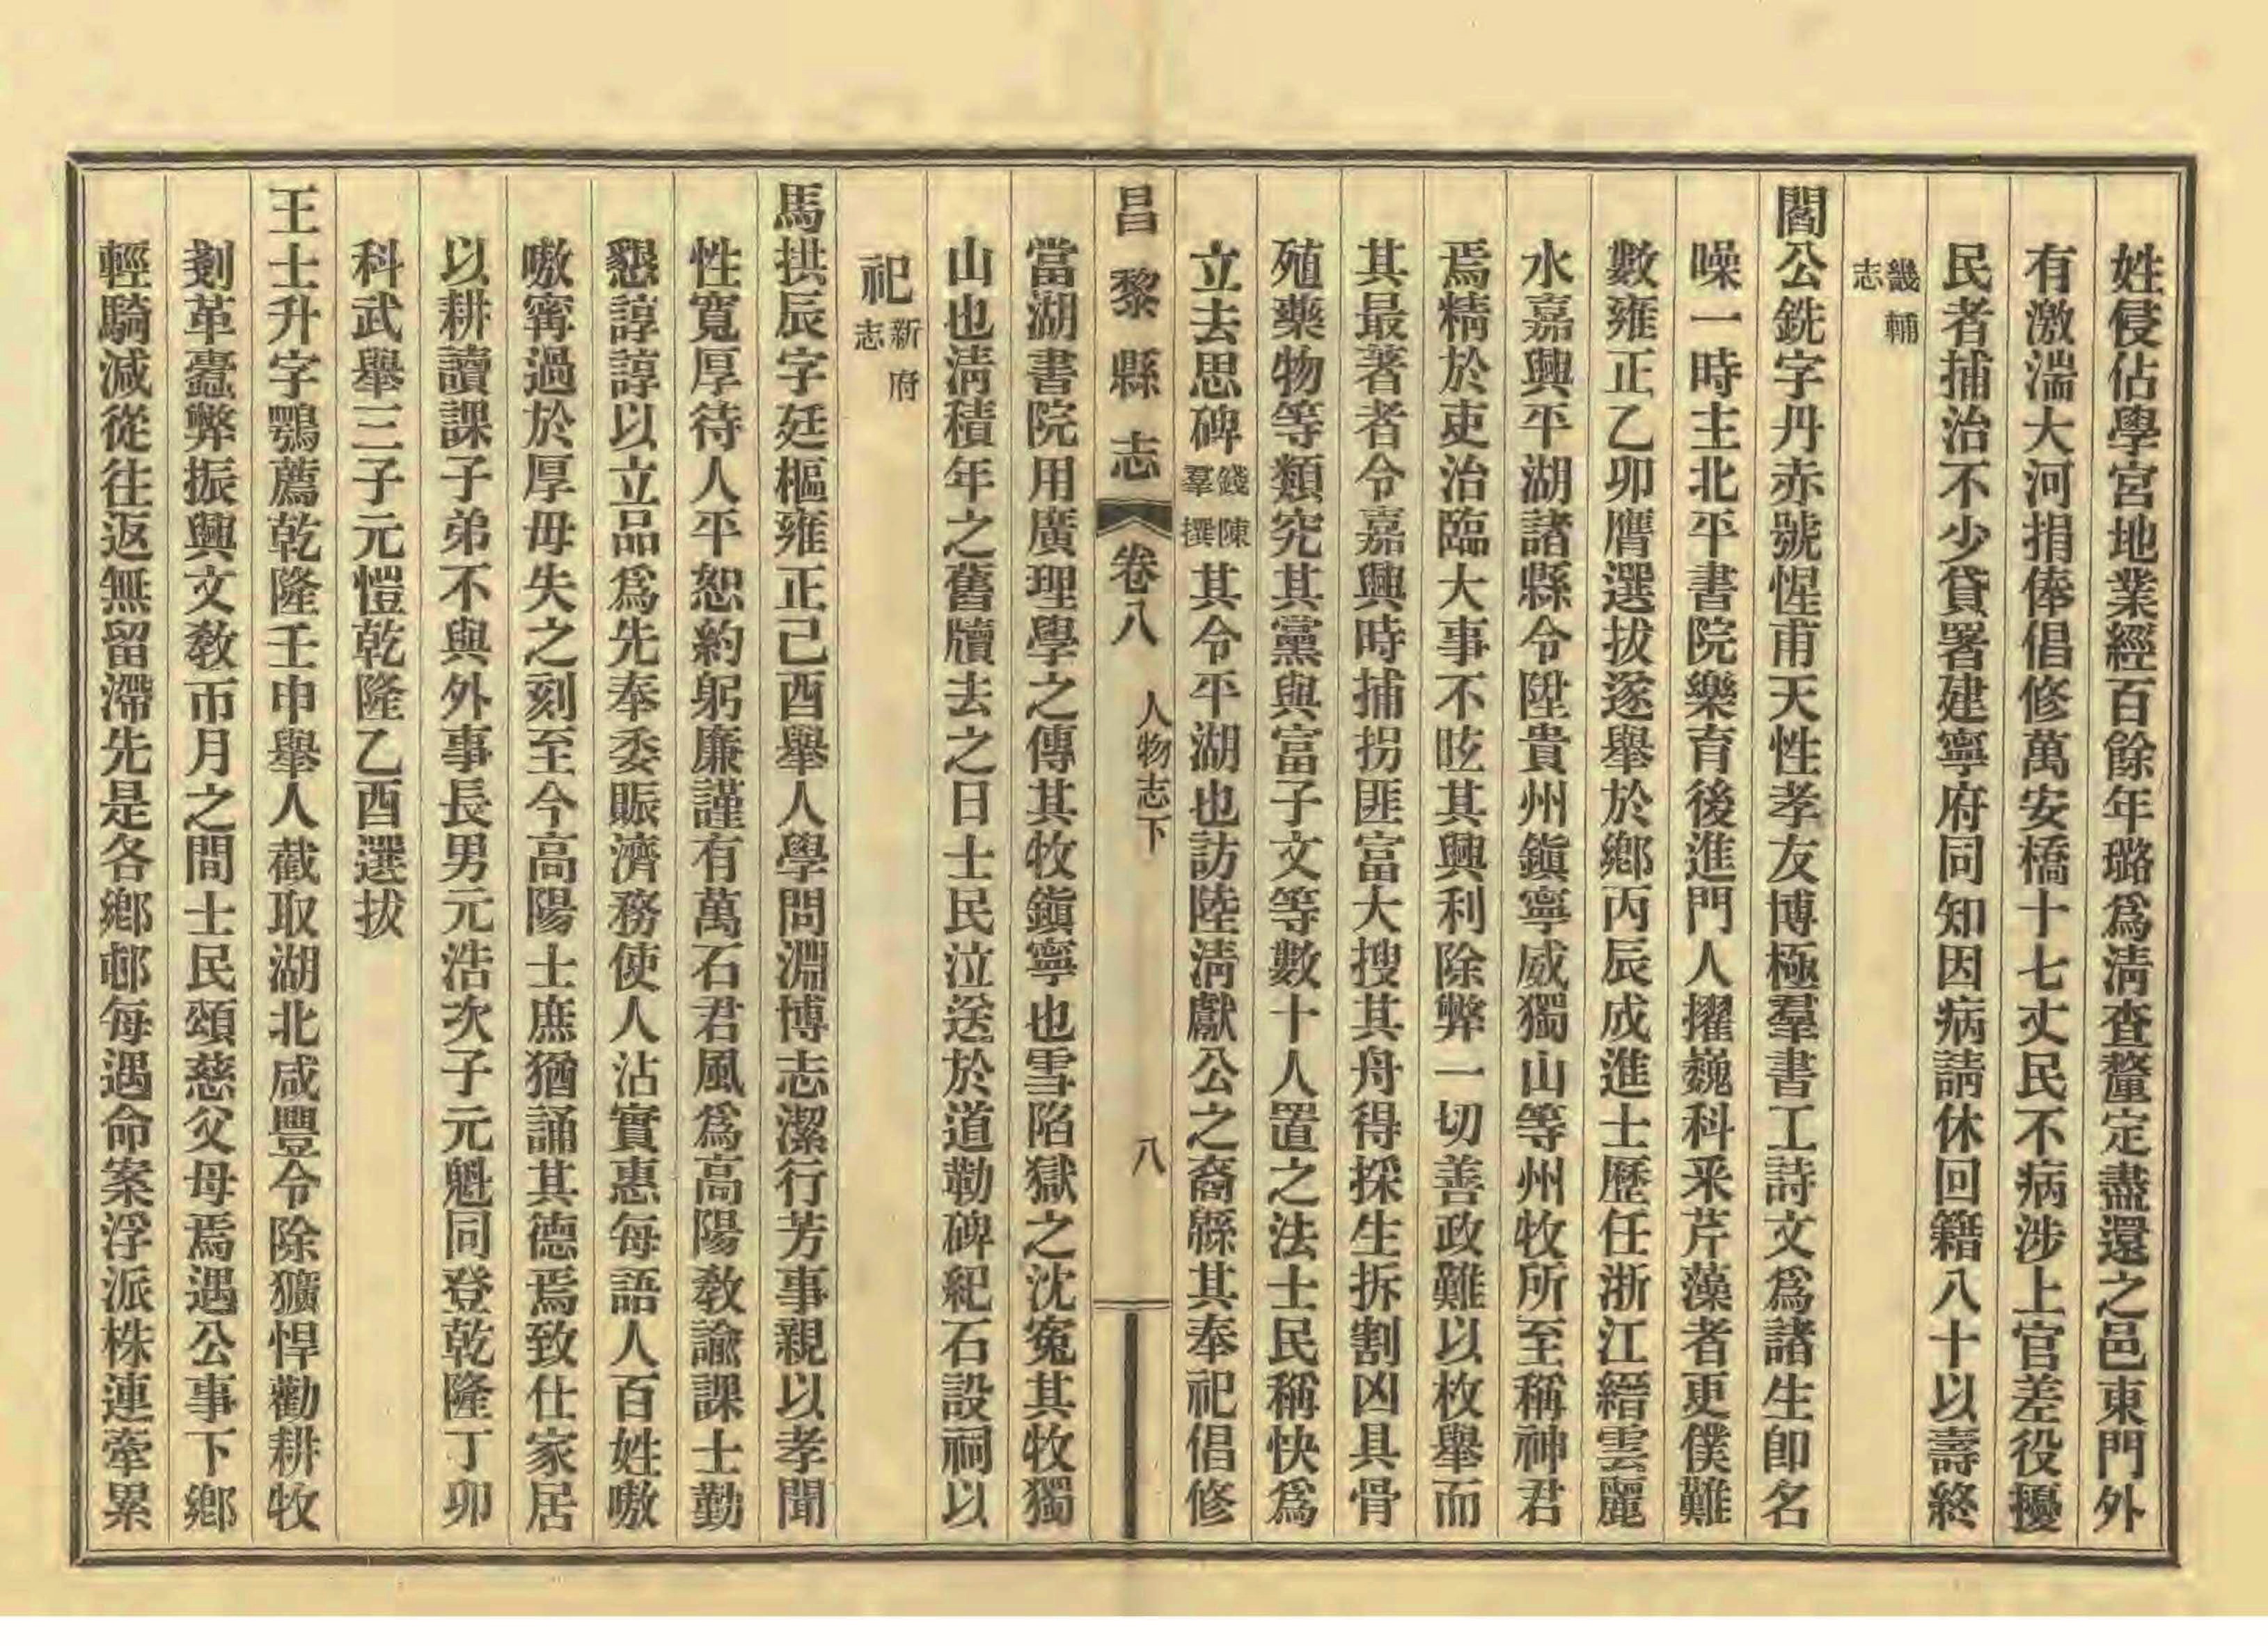 姓侵佔學宮地業經百餘年璐爲淸查釐定盡還之邑東門外
有激湍大河捐俸倡修萬安橋十七丈民不病涉上官差役擾
民者捕治不少貸署建寧府同知因病請休回籍八十以壽終
畿輔
志
閻公銑字丹赤號惺甫天性孝友博極羣書工詩文爲諸生卽名
噪一時主北平書院樂育後進門人擢巍科釆芹藻者更僕難
數雍正乙卯膺選拔遂舉於鄕丙辰成進士歷任浙江縉雲麗
水嘉興平湖諸縣令陞貴州鎭寧威獨山等州牧所至稱神君
焉精於吏治臨大事不眩其興利除弊一切善政難以枚舉而
其最著者令嘉興時捕拐匪富大搜其舟得採生拆割凶具骨
殖藥物等類究其黨與富子文等數十人置之法士民稱快爲
立去思碑錢陳羣撰其令平湖也訪陸淸獻公之裔繇其奉祀倡修
昌黎縣志 卷八 人物志下 八
當湖書院用廣理學之傳其牧鎭寧也雪陷獄之沈寃其牧獨
山也淸積年之舊牘去之日士民泣送於道勒碑紀石設祠以
祀新府志
馬拱辰字廷樞雍正己酉舉人學問淵博志潔行芳事親以孝聞
性寬厚待人平恕約躬廉謹有萬石君風爲高陽敎諭課士勤
懇諄諄以立品爲先奉委賑濟務使人沾實惠每語人百姓嗷
嗷甯過於厚毋失之刻至今高陽士庶猶誦其德焉致仕家居
以耕讀課子弟不與外事長男元浩次子元魁同登乾隆丁卯
科武舉三子元愷乾隆乙酉選拔
王士升字鶚薦乾隆壬申舉人截取湖北咸豐令除獷悍勸耕牧
剗革蠹弊振興文敎帀月之間士民頌慈父母焉遇公事下鄕
輕騎减從往返無留滯先是各鄕邨每遇命案浮派株連牽累